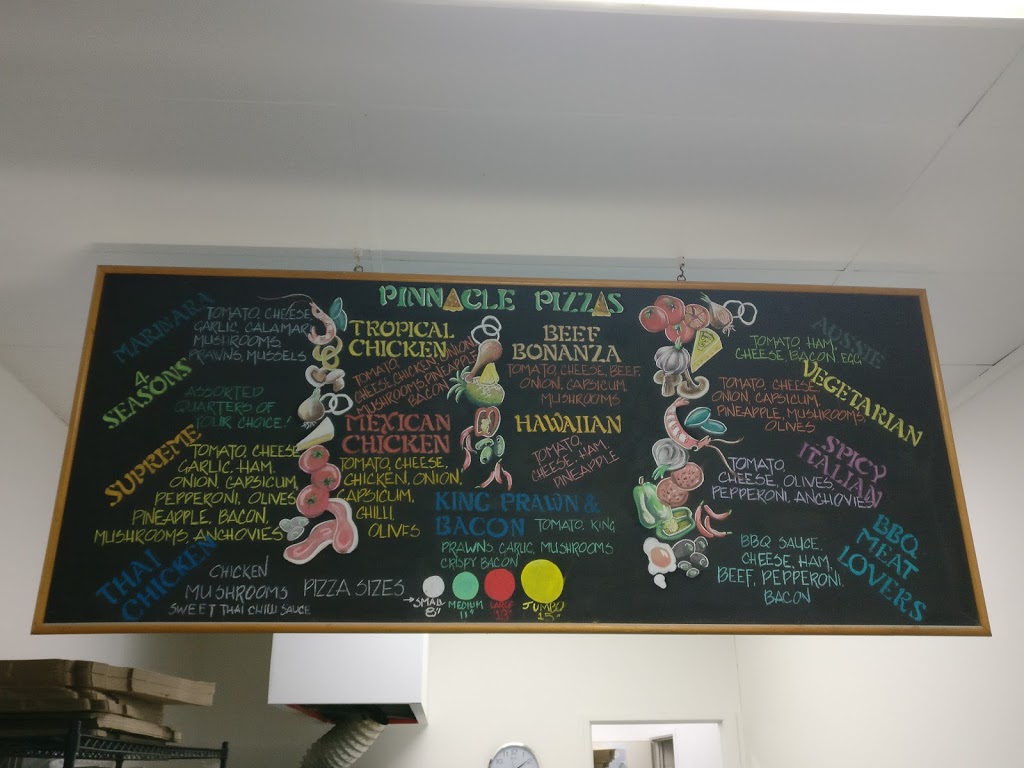 PINNACLE PIZZAS
MARINARA
TOMATO, CHEESE
GARLIC, CALAMARI
MUSHROOMS,
PRAWNS, MUSSELS
4
SEASONS
ASSORTED
QUARTERS OF
YOUR CHOICE!
SUPREME
TOMATO, CHEESE
GARLIC, HAM,
ONION, CAPSICUM,
PEPPERONI, OLIVES
PINEAPPLE, BACON,
MUSHROOMS, ANCHOVIES
THAI
CHICKEN
CHICKEN
MUSHROOMS
SWEET THAI CHILLI SAUCE
TROPICAL
CHICKEN
TOMATO,
CHEESE, CHICKEN, ONION
MUSHROOMS, PINEAPPLE
BACON
MEXICAN
CHICKEN
TOMATO, CHEESE,
CHICKEN, ONION,
CAPSICUM,
CHILLI,
OLIVES
BEEF
BONANZA
TOMATO, CHEESE, BEEF,
ONION, CAPSICUM,
MUSHROOMS
HAWAIIAN
TOMATO,
CHEESE, HAM,
PINEAPPLE
KING PRAWN &
BACON
TOMATO, KING
PRAWNS, GARLIC, MUSHROOMS
CRISPY BACON
PIZZA SIZES
SMALL
8"
MEDIUM
11"
LARGE
13"
JUMBO
15"
AUSSIE
TOMATO, HAM,
CHEESE, BACON, EGG
VEGETARIAN
TOMATO, CHEESE
ONION, CAPSICUM,
PINEAPPLE, MUSHROOMS,
OLIVES
SPICY
ITALIAN
TOMATO,
CHEESE, OLIVES,
PEPPERONI, ANCHOVIES
BBQ
MEAT
LOVERS
BBQ SAUCE,
CHEESE, HAM,
BEEF, PEPPERONI,
BACON